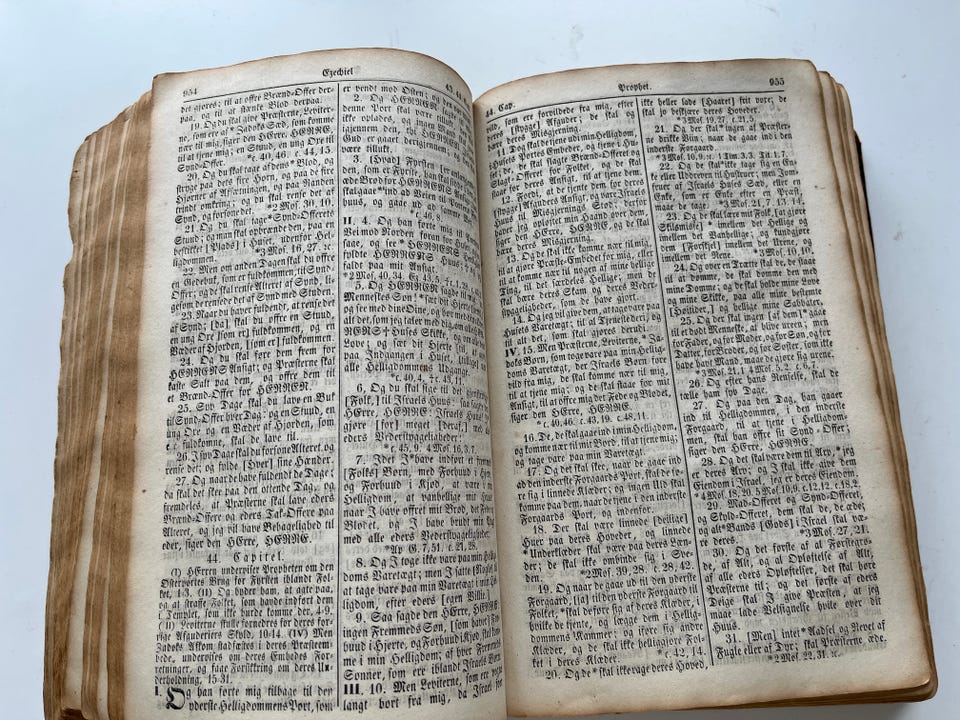 954
Ezechiel
det gjøres; til at offre Brænd-Offer der-
paa, og til at stænke Blod derpaa.
19. Og du skal give Præsterne, Leviter-
ne, som ere af *Zadoks Sæd, som komme
nær til mig, siger den HErre, HERRE,
til at tjene mig; en Stud, en ung Oxe til
Synd-Offer. *c. 40, 46. c. 44, 15.
20. Og du skal tage af dens *Blod, og
stryge paa dets fire Horn, og paa de fire
Hjørner af Afsætningen, og paa Randen
trindt omkring; og du skal rense det af
Synd, og forsone det. *2 Mos. 30, 10.
21. Og du skal tage *Synd-Offerets
Stud; og man skal opbrænde den, paa en
bestikket [Plads] i Huset, udenfor Hel-
ligdommen. *3 Mos. 16, 27.
22. Men om anden Dagen skal du offre
en Gedebuk, som er fuldkommen, til Synd-
Offer; og de skal rense Alteret af Synd, li-
gesom de rensede det af Synd med Studen.
23. Naar du haver fuldendt, at rense det
af Synd; [da] skal du offre en Stud,
en ung Oxe [som er] fuldkommen, og en
Væder af Hjorden, [som er] fuldkommen.
24. Og du skal føre dem frem for
HERRENS Ansigt; og Præsterne skal
kaste Salt paa dem, og offre dem til
et Brænd-Offer for HERREN.
25. Syv Dage skal du lave en Buk
til Synd-Offer hver Dag; og en Stud, en
ung Oxe og en Væder af Hjorden, som
ere fuldkomne, skal de lave til.
26. I syv Dage skal du forsone Alteret, og
rense det; og fylde [Hver] sine Hænder.
27. Og naar de have fuldendt de Dage;
da skal det skee paa den ottende Dag, og
fremdeles, at Præsterne skal lave eders
Brænd-Offere og eders Tak-Offere paa
Alteret, og jeg vil have Behagelighed til
eder, siger den HErre, HERRE.
44 Capitel.
(I) HErren underviser Propheten om den
Østerports Brug for Fyrsten iblandt Fol-
ket, 1-3. (II) Og byder ham, at agte paa,
og at straffe Folket, som havde indført dem
i Templet, som ikke burde komme der, 4-9.
Leviterne skulle fornedres for deres for-
rige Afguderiers Skyld, 10-14. (IV) Men
Zadoks Afkom stadfæstes i deres Præsteem-
bede, undervises om deres Embedes For-
retninger, og faae Forsikring om deres Un-
derholdning, 15-31.
I. Og han førte mig tilbage til den
yderste Helligdommens Port, som
er vendt mod Østen; og den
2. Og HERREN
denne Port skal være
ikke oplades, og ingen Mand
gjennem den, thi HERREN
Gud er gaaet derigjennem, og
være tillukt.
3. [Hvad] Fyrsten
den, som er Fyrste, han
æde Brød for HERRENS
skal gaae *ind ad Veien til
huus, og gaae ud
*c. 46, 8.
II. 4. Og han førte mig
Vei mod Norden foran for
saae, og see *HERRENS
fyldte HERRENS Huus
faldt paa mit Ansigt.
*2 Mos. 40, 34.
5. Og HERREN sagde til mig
Menneskens Søn!
og see med dine Øine, og hør med
alt det, som jeg taler med dig, om alle
RENS Huses Skikke, og om
Love; og sæt dit Hjerte til, at
paa Indgangen i Huset, til
alle Helligdommens Udgang.
*c. 40, 4. †c. 43, 11.
6. Og du skal sige til det
[Folk,] til Israels Huus: saa sagde
HErre, HERRE: Israels Huus!
gjøre [for] meget [deraf,] med
eders Vederstyggeligheder:
*c. 45, 9. 4 Mos. 16, 3.7.
7. Idet I *have indført et
[Folks] Børn, med Forhud i
og Forhud i Kjød, at være i
Helligdom, at vanhellige mit
naar I have offret mit Brød, det
Blodet, og I have brudt min
med alle eders Vederstyggeligheder.
*Ap. G. 7, 51. c. 21, 28.
8. Og I toge ikke vare paa min
doms Varetægt; men I satte
at tage vare paa min Varetægt i min
ligdom, efter eders [egen Villie.]
9. Saa sagde den HErre, HERRE:
ingen Fremmeds Søn, [som haver]
hud i Hjerte, og Forhud i Kjød, skal
me i min Helligdom; af hver
Sønner, som ere iblandt Israels
III. 10. Men Leviterne, som ere
langt bort fra mig, da Israel
44. Cap.
Prophet.
955
vild, som ere forvildede fra mig, efter
[stygge] Afguder; de skal og
bære deres Misgjerning.
11. Dog skal de tjene udi min Helligdom,
i Husets Portes Embeder, og tjene i Hu-
set; de skal slagte Brænd-Offeret og
Slagt-Offeret for Folket, og de skal
staae for deres Ansigt, til at tjene dem.
12. Fordi, at de tjente dem for deres
[stygge] Afguders Ansigt, og vare Israels
Huus til Misgjernings Stød; derfor
haver jeg opløftet min Haand over dem,
siger den HErre, HERRE, og de skal
bære deres Misgjerning.
13. Og de skal ikke komme nær til mig,
til at gjøre Præste-Embedet for mig, eller
til at komme nær til nogen af mine hellige
Ting, til det særdeles Hellige; men de
skal bære deres Skam og deres Veder-
styggeligheder, som de have gjort.
14. Og jeg vil give dem, at tage vare paa
Husets Varetægt; til al Tjeneste deri, og
til alt det, som skal gjøres derudi.
IV. 15. Men Præsterne, Leviterne, *Za-
doks Børn, som toge vare paa min Hellig-
doms Varetægt, der Israels Børn fore
vild fra mig, de skal komme nær til mig,
til at tjene mig; og de skal staae for mit
Ansigt, til at offre mig det Fede og Blodet,
siger den HErre, HERRE.
*c. 40, 46. c. 43, 19. c. 48, 11.
16. De, de skal gaae ind i min Helligdom,
og komme nær til mit Bord, til at tjene mig;
og tage vare paa min Varetægt.
17. Og det skal skee, naar de gaae ind
ad den inderste Forgaards Port, skal de iø-
re sig i linnede Klæder; og ingen Uld skal
komme paa dem, naar de tjene i den inderste
Forgaards Port, og indenfor.
18. Der skal være linnede [deilige]
Huer paa deres Hoveder, og linnede
*Underklæder skal være paa deres Læn-
der; de skal ikke ombinde sig i Sve-
den. *2 Mos. 39, 28. c. 28, 42.
19. Og naar de gaae ud til den yderste
Forgaard, [ja] til den yderste Forgaard til
Folket, *skal de føre sig af deres Klæder, i
hvilke de tjente, og lægge dem i Hellig-
dommens Kammer; og iføre sig andre
Klæder, og de skal ikke helliggjøre Fol-
ket i deres Klæder. *c. 42, 14.
20. Og de skal ikke rage deres Hoved,
ikke heller lade [Haaret] frit voxe; de
skal jo beskjære deres Hoveder.
*3 Mos. 19, 27. c. 21, 5.
21. Og der skal *ingen af Præsterne
drikke Viin, naar de gaae ind i den
inderste Forgaard.
*3 Mos. 10, 9. 1 Tim. 3, 3. Tit. 1, 7.
22. Og de skal *ikke tage sig en En-
ke eller Uddreven til Hustruer; men Jom-
fruer af Israels Huses Sæd, eller en
Enke, som er Enke efter en Præst,
maae de tage. *3 Mos. 21, 7. 13. 14.
23. Og de skal lære mit Folk, [at gjøre
Skilsmisse] *imellem det Hellige og
imellem det Vanhellige; og kundgjøre
dem [Forskjel] imellem det Urene, og
imellem det Rene. *3 Mos. 10, 10.
24. Og over en Trætte skal de, de staae
at dømme, de skal dømme den med
mine Domme; og de skal holde mine Love
og mine Skikke, paa alle mine bestemte
[Høitider,] og hellige mine Sabbater.
25. Og der skal ingen [af dem] *gaae
til et dødt Menneske, at blive ureen; men
for Fader, og for Moder, og for Søn, og for
Datter, for Broder, og for Søster, som ikke
have havt Mand, maae de gjøre sig urene.
*3 Mos. 21, 1. 4 Mos. 5, 2. c. 6, 7.
26. Og efter hans Renselse, skal de
tælle ham syv Dage.
27. Og paa den Dag, han gaaer
ind til Helligdommen, i den inderste
Forgaard, til at tjene i Helligdom-
men, skal han offre sit Synd-Offer;
siger den HErre, HERRE.
28. Og det skal være dem til Arv, *jeg
er deres Arv; og I skal ikke give dem
Eiendom i Israel, jeg er deres Eiendom.
*4 Mos. 18, 20. 5 Mos. 10, 9. c. 12, 12. c. 18, 2.
29. Mad-Offeret og Synd-Offeret,
og Skyld-Offeret, dem skal de, de æde;
og alt *Bands [Gods] i Israel skal væ-
re deres. *3 Mos. 27, 21.
30. Og det første af al Førstegrø-
des Alt, og al Opløftelse af Alt,
af alle eders Opløftelser, det skal høre
Præsterne til; og det første af eders
Deige skal I give Præsten, at jeg
maae lade Velsignelse hvile over dit
Huus.
31. [Men] intet *Aadsel og Revet af
Fugle eller af Dyr; skal Præsterne æde.
*2 Mos. 22, 31.